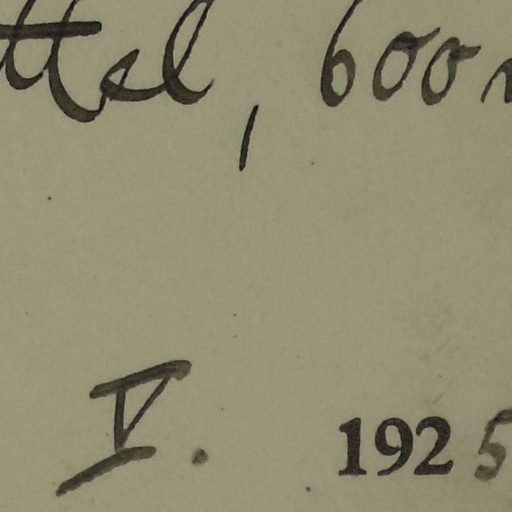 ttel, 600
V. 1925